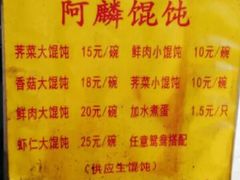 阿麟馄饨
荠菜大馄饨 15元/碗 鲜肉小馄饨 10元/碗
香菇大馄饨 18元/碗 荠菜小馄饨 10元/碗
鲜肉大馄饨 20元/碗 加水煮蛋 1.5元/只
虾仁大馄饨 25元/碗 任意鸳鸯搭配
(供应生馄饨)